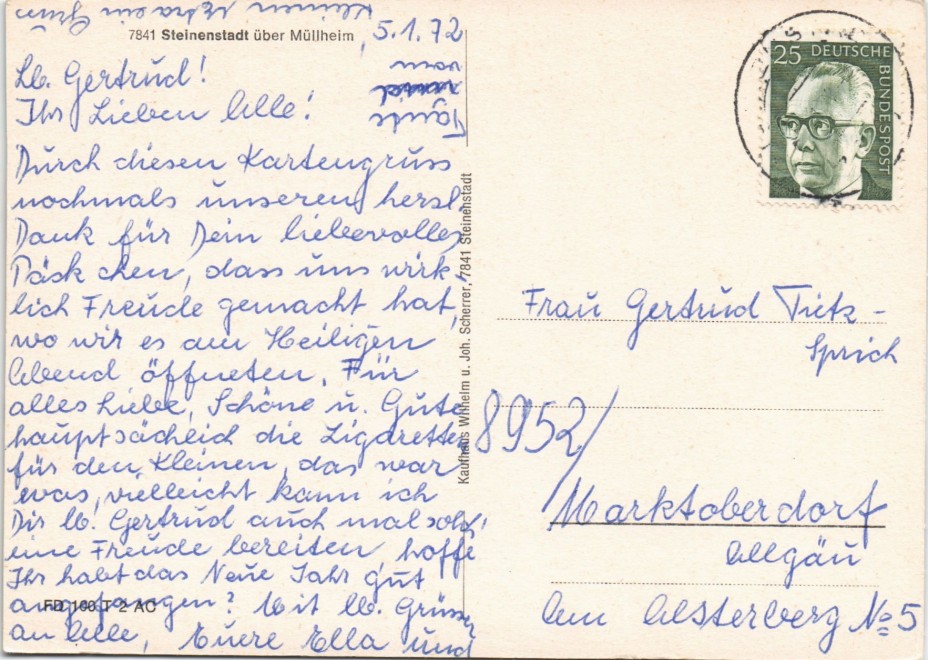 7841 Steinenstadt über Müllheim, 5.1.72
Lb. Gertrud!
Ihr Lieben Alle!
Durch diesen Kartengruss
nochmals unseren herzl.
Dank für Dein liebevolles
Päskchen, dass uns wirk-
lich Freude gemacht hat,
wo wir es am Heiligen
Abend öffneten. Für
alles Liebe, Schöne u. Gute
hauptsächleid die Zigaretten
für den Kleinen, das war
was, vielleicht kann ich
Dir lb. Gertrud auch mal solch
eine Freude bereiten, hoffe
Ihr habt das Neue Jahr gut
angefangen? Mit lb. Grüssen
an Alle, Euere Ella und
Tante
vom
kleinen extra ein
FD 100 T 2 AC
Kaufhaus Wilhelm u. Joh. Scherrer, 7841 Steinenstadt
25 DEUTSCHE
BUNDESPOST
Frau Gertrud Tietz-
Sprich
8952/
Marktoberdorf
Allgäu
Am Alsterberg No 5